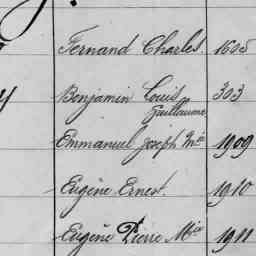 Fernand Charles. 1605
Benjamin Louis 303
Guillaume
Emmanuel Joseph Mie 1909
Eugène Ernest. 1910
Eugène Pierre Mie 1911